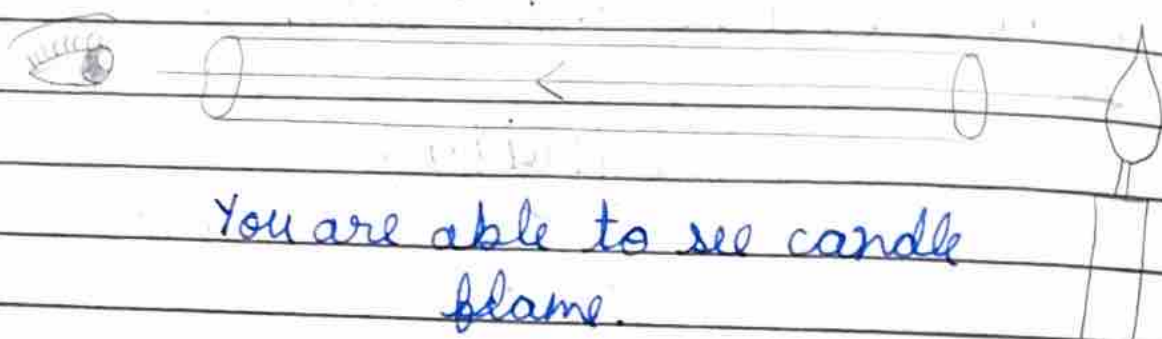 You are able to see candle
flame.